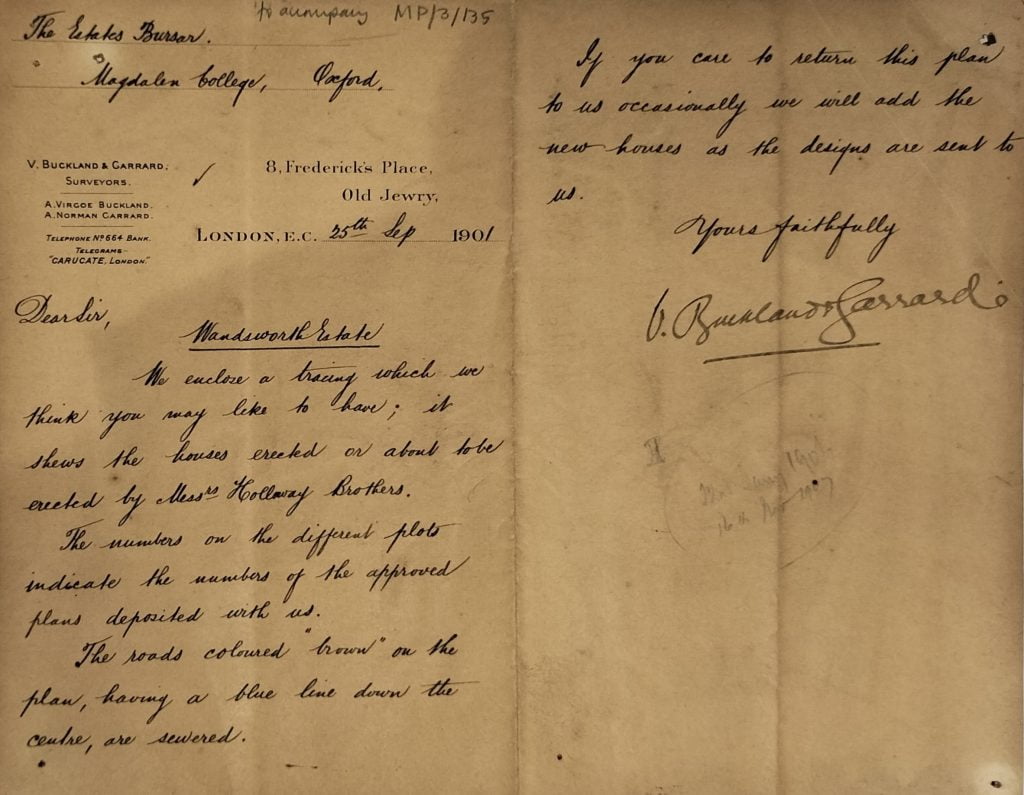 to accompany MP/3/135
The Estates Bursar.
Magdalen College, Oxford.
V. BUCKLAND & GARRARD.
SURVEYORS.
A. VIRGOE BUCKLAND.
A. NORMAN GARRARD.
TELEPHONE Nº 664 BANK.
TELEGRAMS-
"CARUCATE, LONDON."
8, Frederick's Place,
Old Jewry,
LONDON, E.C. 25th Sep 1901
Dear Sir,
Wandsworth Estate
We enclose a tracing which we
think you may like to have; it
shews the houses erected or about to be
erected by Messrs Holloway Brothers.
The numbers on the different plots
indicate the numbers of the approved
plans deposited with us.
The roads coloured "brown" on the
plan, having a blue line down the
centre, are sewered.
If you care to return this plan
to us occasionally we will add the
new houses as the designs are sent to
us.
Yours faithfully
V. Buckland & Garrard
II
16th Nov 1907